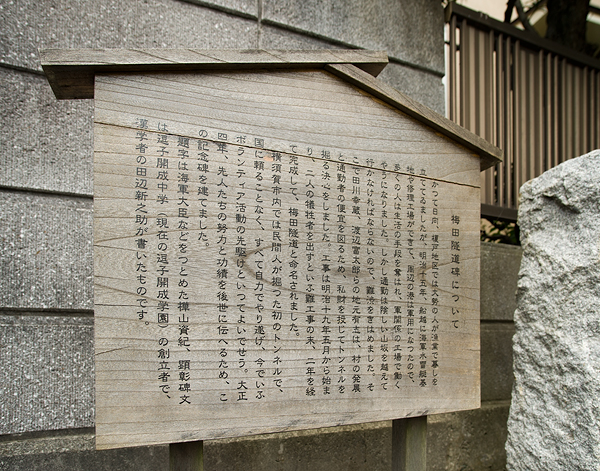 梅田隧道碑について
かつて日向、榎戸地区では大勢の人が漁業で暮しを
立ててゐましたが、明治十五年、船越に海軍水雷艇基
地や修理工場ができて、周辺の港は軍用になつたので、
多くの人は生活の手段を奪はれ、軍関係の工場で働く
やうになりました。しかし通勤は険しい山坂を越えて
行かなければならないので、難渋をきはめました。そ
こで田川幸蔵、渡辺富太郎らの地元有志は、村の発展
と通勤者の便宜を図るため、私財を投じてトンネルを
掘る決心をしました。工事は明治十九年五月から始ま
り、二人の犠牲者を出すといふ難工事の末、二年を経
て完成して、梅田隧道と命名されました。
横須賀市内では民間人が掘つた初のトンネルで、
国に頼ることなく、すべて自力でやり遂げ、今でいふ
ボランティア活動の先駆けといつてよいでせう。大正
四年、先人たちの努力と功績を後世に伝へるため、こ
の記念碑を建てました。
題字は海軍大臣などをつとめた樺山資紀、顕彰碑文
は逗子開成中学（現在の逗子開成学園）の創立者で、
漢学者の田辺新之助が書いたものです。